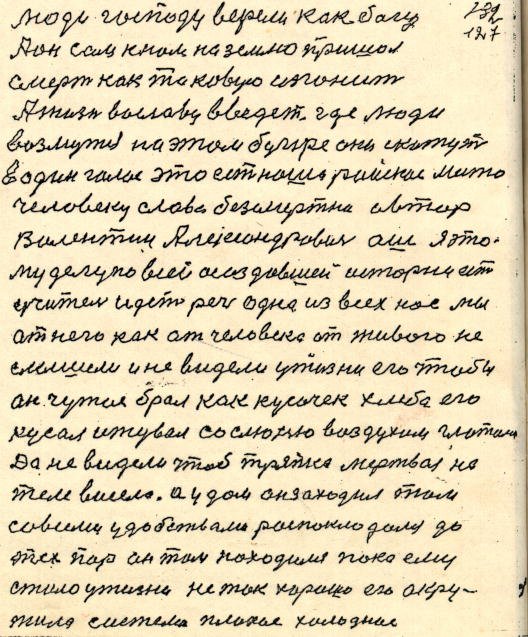 люди господу верели как богу 132
127
А он сам к ном на землю пришол
смерт как таковую изгонит
А жизн во славу введет. где люди
возмутся на этом бугре они скажут
в один голос это ест наша райское место
человеку слава безсмертна автор
Валентин Александрович аш я этому
му делу по всей создавшей истории ест
учител идет реч одна из всех нос мы
от него как от человека от живого не
слышели и не видели у жизни его чтобы
он чужое брал как кусочек хлеба его
кусал и жувал со слюною воздухом глотал
Да не видели чтоб тряпка мертвая на
теле висела. а у дом он заходил там
совсими удобствами
тех пор он там находился пока ему
стало у жизни не так хорошо его окру-
жила система плохое холоднае